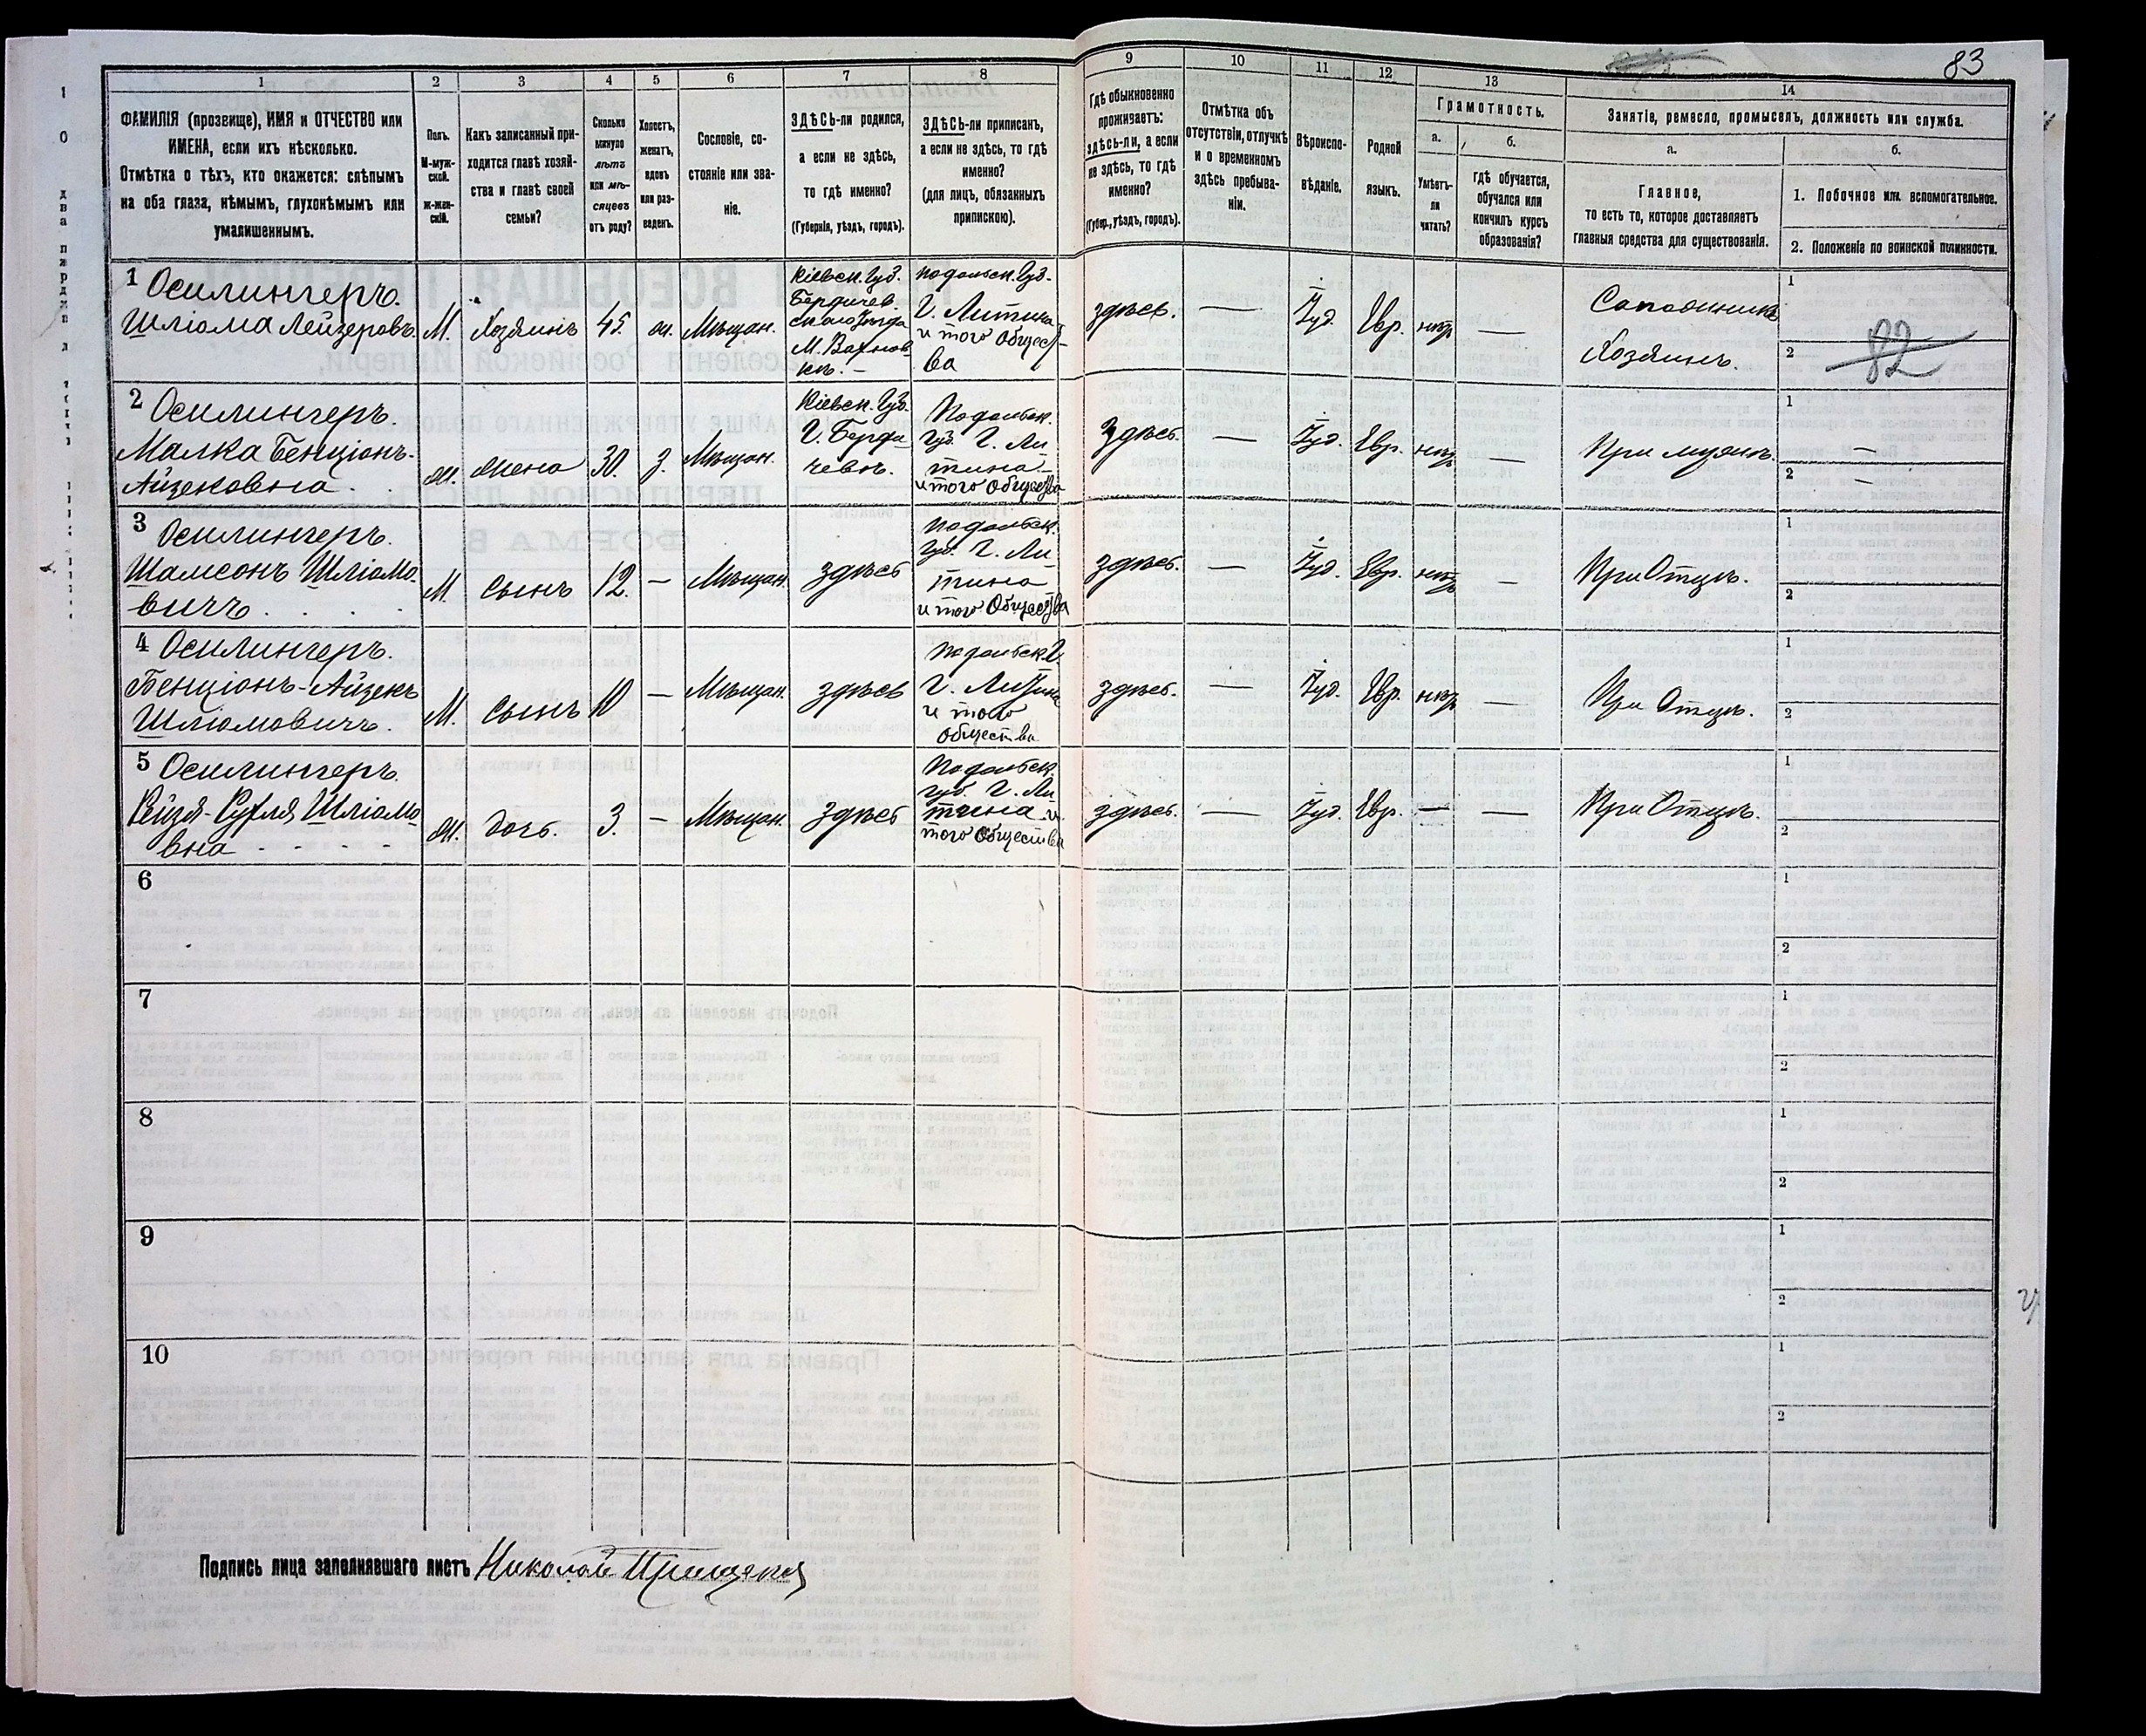 83
1 2 3 4 5 6 7 8 9 10 11 12 13 14
ФАМИЛІЯ (прозвище), ИМЯ и ОТЧЕСТВО или
ИМЕНА, если ихъ нѣсколько.
Отмѣтка о тѣхъ, кто окажется: слѣпымъ
на оба глаза, нѣмымъ, глухонѣмымъ или
умалишеннымъ.
Полъ.
М-муж-
ской.
Ж-жен-
скій.
Какъ записанный при-
ходится главѣ хозяй-
ства и главѣ своей
семьи?
Сколько
минуло
лѣтъ
или мѣ-
сяцевъ
отъ роду?
Холостъ,
женатъ,
вдовъ
или раз-
веденъ.
Сословіе, со-
стояніе или зва-
ніе.
ЗДѢСЬ-ли родился,
а если не здѣсь,
то гдѣ именно?
(Губернія, уѣздъ, городъ).
ЗДѢСЬ-ли приписанъ,
а если не здѣсь, то гдѣ
именно?
(для лицъ, обязанныхъ
припискою).
Гдѣ обыкновенно
проживаетъ:
здѣсь-ли, а если
не здѣсь, то гдѣ
именно?
(Губер., уѣздъ, городъ).
Отмѣтка объ
отсутствіи, отлучкѣ
и о временномъ
здѣсь пребыва-
ніи.
Вѣроиспо-
вѣданіе.
Родной
языкъ.
Грамотность.
а.
Умѣетъ-
ли
читать?
б.
гдѣ обучается,
обучался или
кончилъ курсъ
образованія?
Занятіе, ремесло, промыселъ, должность или служба.
а.
Главное,
то есть то, которое доставляетъ
главныя средства для существованія.
б.
1. Побочное или вспомогательное.
2. Положеніе по воинской повинности.
1 Осилингеръ.
Шліома Лейзеровъ.
М.
Хозяинъ
45.
ж.
Мѣщан.
Кіевск. Губ.
Бердичев
скаго Уѣзда
М. Вахнов
кѣ. –
Подольск. Губ.
Г. Литина
и того Общест-
ва
здѣсь.
—
Іуд.
Евр.
нѣтъ
—
Сапожникъ
Хозяинъ.
1
2
82
2 Осилингеръ.
Малка Бенціонъ-
Айзековна.
ж.
жена
30.
з.
Мѣщан.
Кіевск. Губ.
Г. Берди-
чевъ.
Подольск.
Губ. Г. Ли-
тина
и того Общества
здѣсь.
—
Іуд.
Евр.
нѣтъ
—
При мужѣ.
1 —
2 —
3 Осилингеръ.
Шамсонъ Шліомо-
вичъ.
М.
Сынъ
12.
—
Мѣщан.
здѣсь
Подольск.
Губ. Г. Ли-
тина
и того Общества
здѣсь.
—
Іуд.
Евр.
нѣтъ
—
При Отцѣ.
1
2
4 Осилингеръ.
Бенціонъ-Айзекъ
Шліомовичъ.
М.
Сынъ
10
—
Мѣщан.
здѣсь
Подольск. Г.
Г. Литина
и того
Общества
здѣсь.
—
Іуд.
Евр.
нѣтъ
—
При Отцѣ.
1
2
5 Осилингеръ.
Рейзя-Сухля Шліомо
вна
ж.
дочь.
3.
—
Мѣщан.
здѣсь
Подольск.
губ. Г. Ли
тина и
того Общества
здѣсь.
—
Іуд.
Евр.
—
—
При Отцѣ.
1
2
6
1
2
7
1
2
8
1
2
9
1
2
10
1
2
Подпись лица заполнявшаго листъ Николай